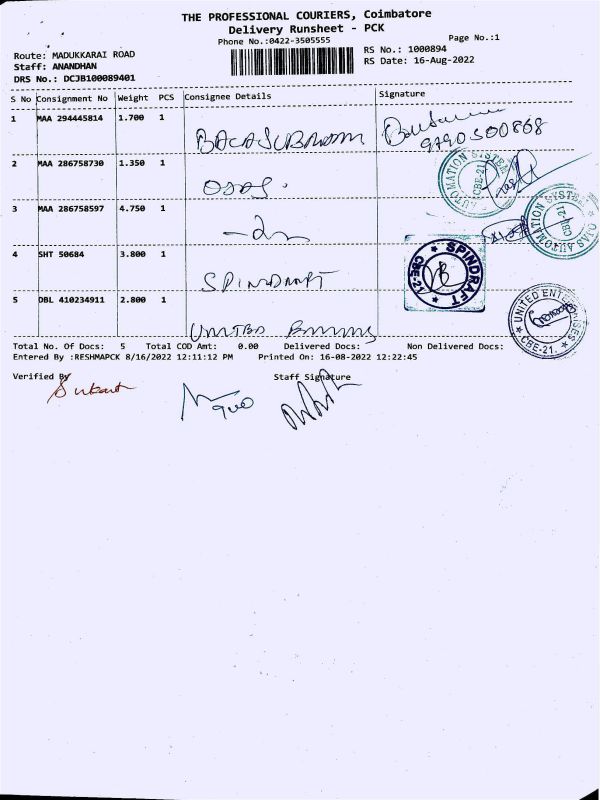 THE PROFESSIONAL COURIERS, Coimbatore
Delivery Runsheet - PCK
Phone No.:0422-3505555
Page No.:1
Route: MADUKKARAI ROAD
RS No.: 1000894
Staff: ANANDHAN
RS Date: 16-Aug-2022
DRS No.: DCJB100089401
S No Consignment No Weight PCS Consignee Details Signature
1 MAA 294445814 1.700 1
9790500868
2 MAA 286758730 1.350 1
3 MAA 286758597 4.750 1
AUTOMATION SYSTEM CBE-21
OJAS AUTOMATION SYSTEM CBE-21
4 SHT 50684 3.800 1 SPINDRAFT
SPINDRAFT CBE-21
5 DBL 410234911 2.800 1
UNITED ENTERPRISES CBE-21.
Total No. Of Docs: 5 Total COD Amt: 0.00 Delivered Docs: Non Delivered Docs:
Entered By :RESHMAPCK 8/16/2022 12:11:12 PM Printed On: 16-08-2022 12:22:45
Verified By Staff Signature